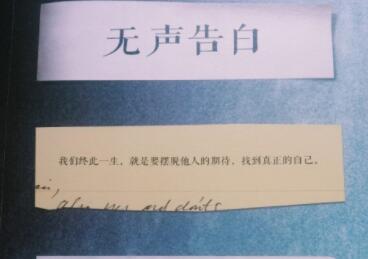 无声告白
我们终此一生，就是要摆脱他人的期待，找到真正的自己。
and don'ts